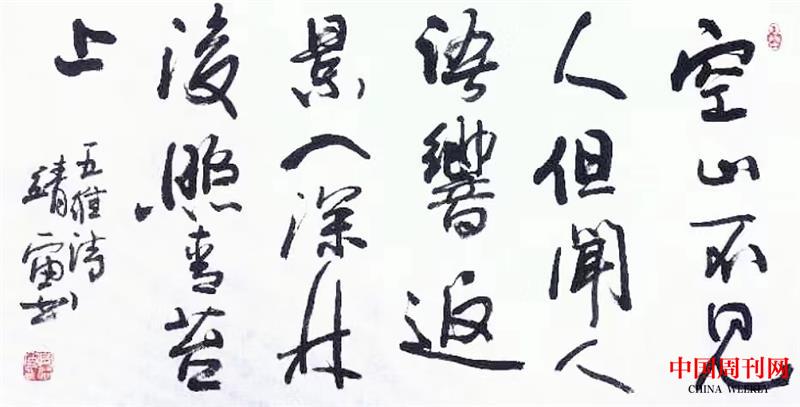 空山不見
人但聞人
語響返
景入深林
復照青苔
上
王維詩
靖雷書
中国周刊网
CHINA WEEKLY